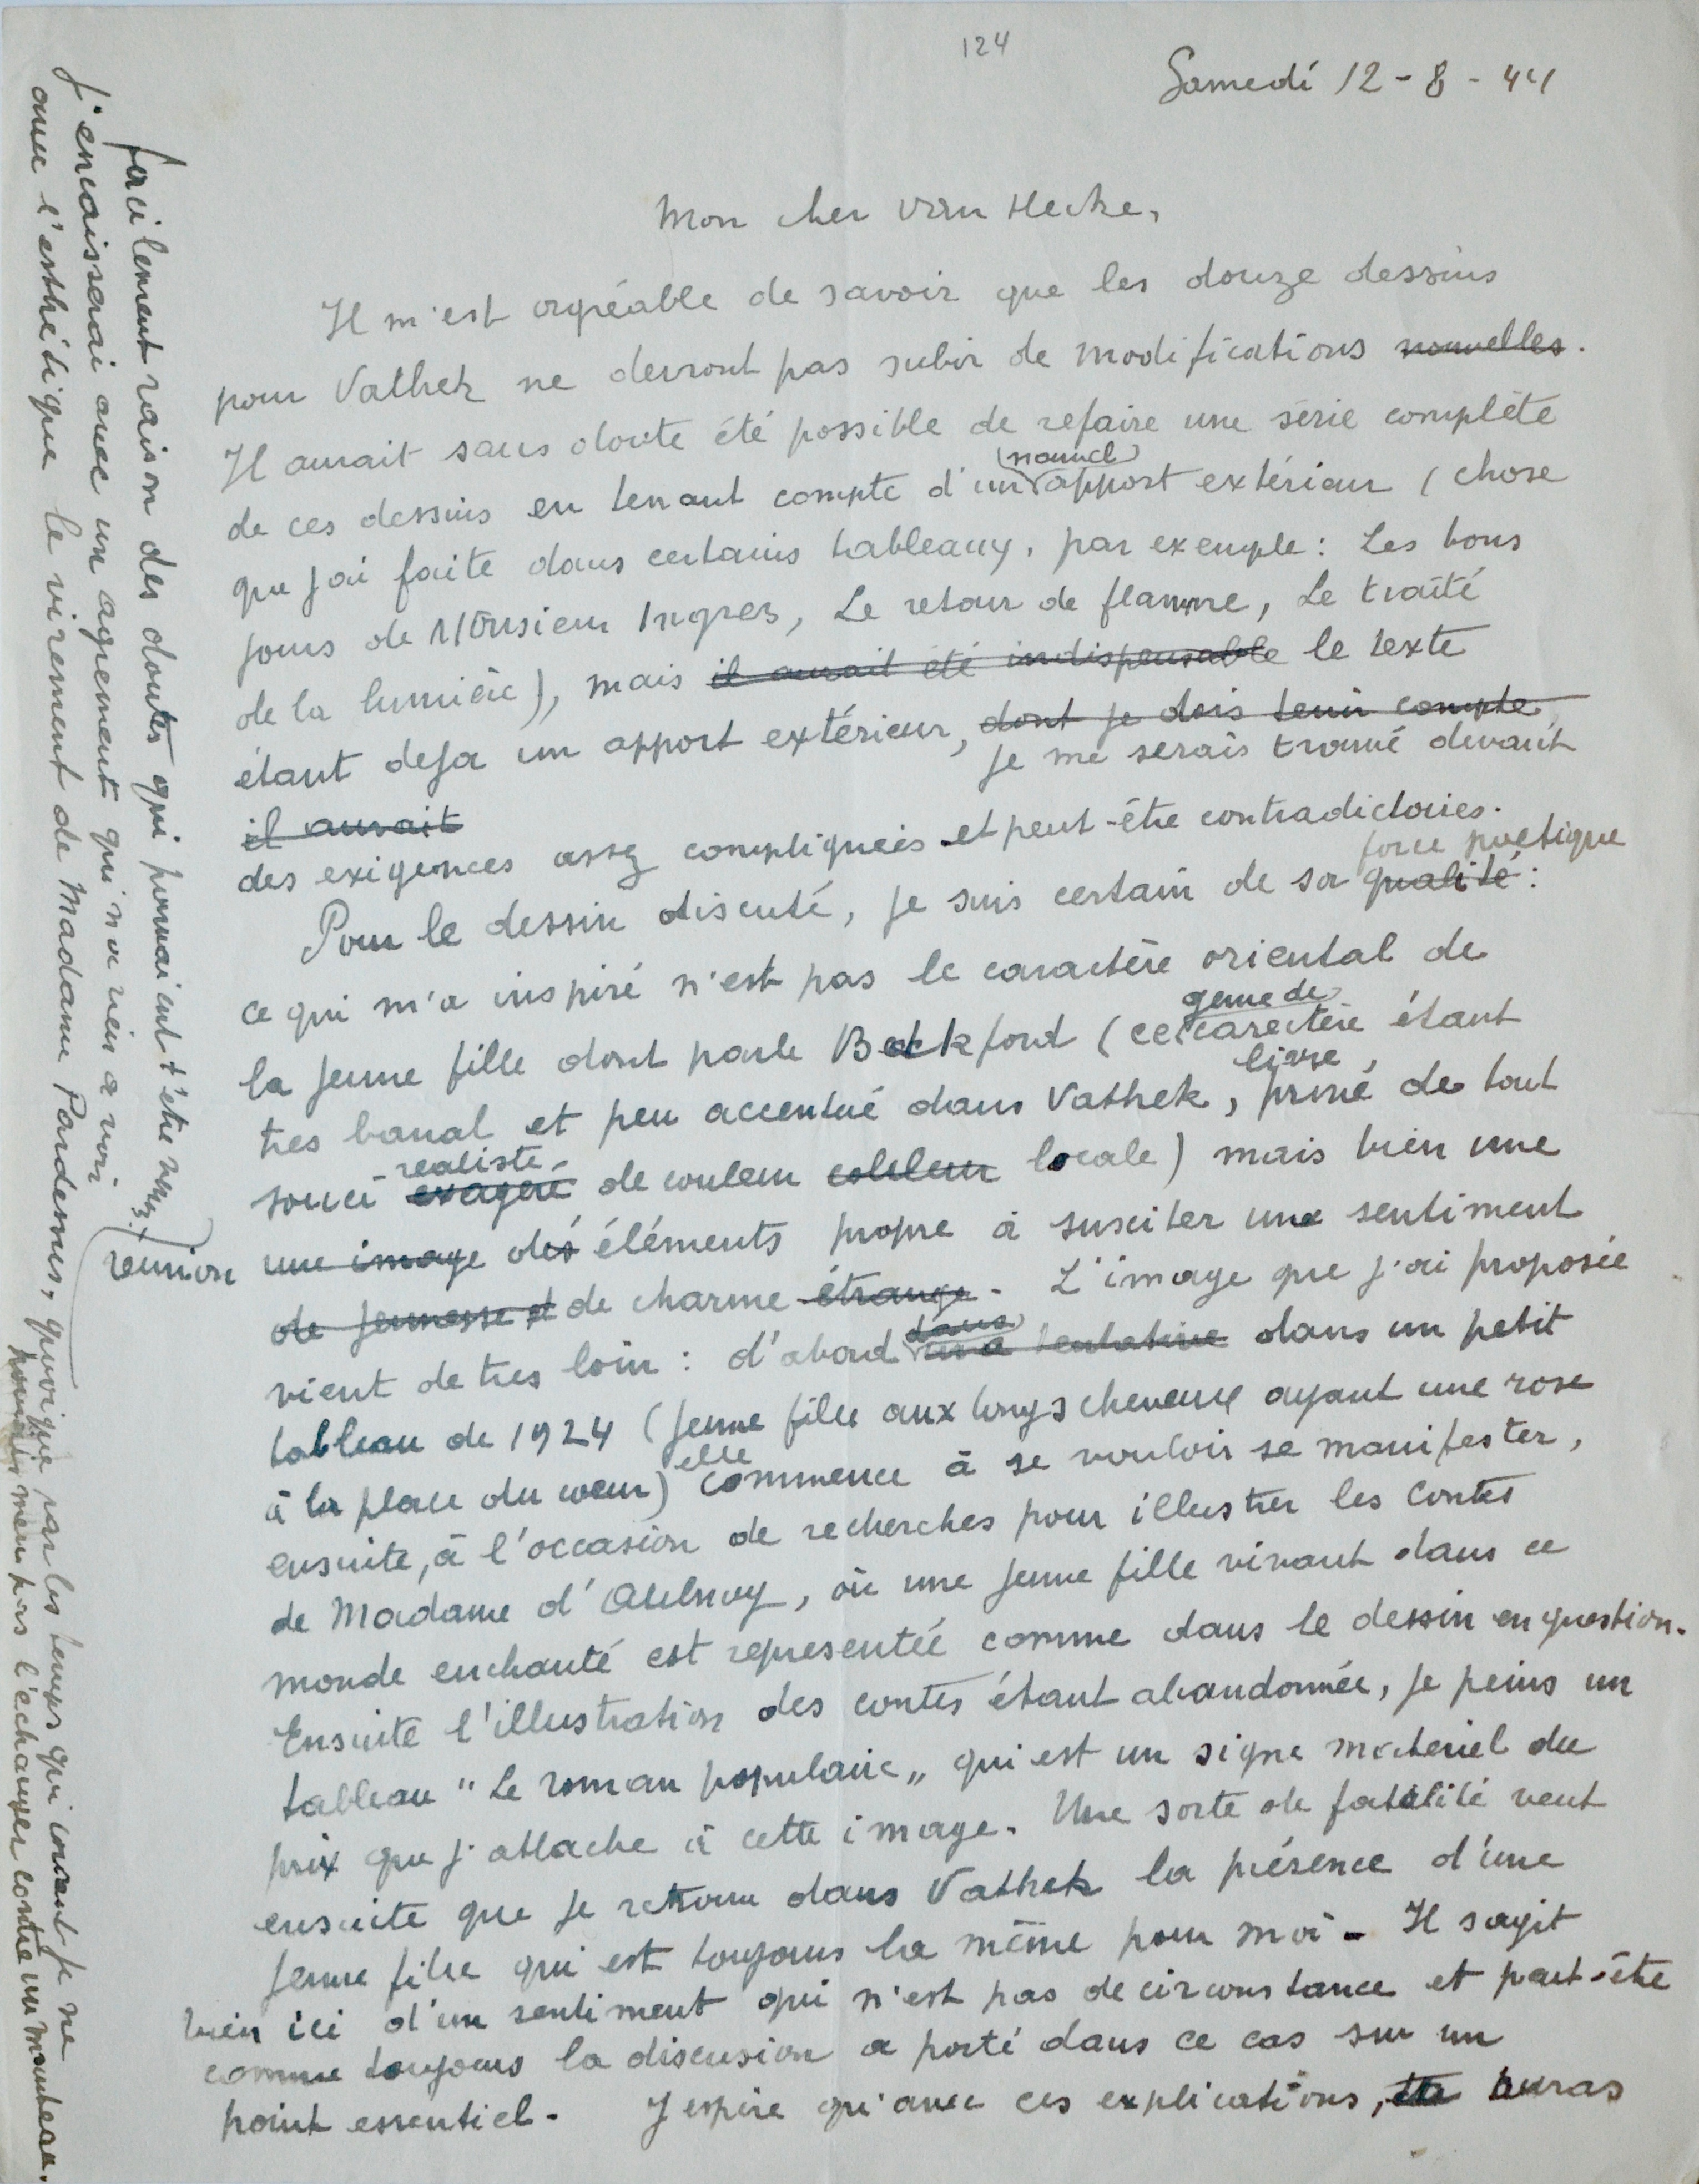 124
Samedi 12 - 8 - 44
Mon cher Van Hecke,
Il m'est agréable de savoir que les douze dessins
pour Vathek ne devront pas subir de modifications nouvelles.
Il aurait sans doute été possible de refaire une série complète
de ces dessins en tenant compte d'un nouvel apport extérieur (chose
que j'ai faite dans certains tableaux, par exemple : Les bons
jours de Monsieur Ingres, Le retour de flamme, Le traité
de la lumière), mais il aurait été indispensable le texte
étant deja un apport extérieur, dont je dois tenir compte,
je me serais trouvé devant
il aurait
des exigences assez compliquées et peut-être contradictoires.
Pour le dessin discuté, je suis certain de sa qualité force poétique :
ce qui m'a inspiré n'est pas le caractère oriental de
la jeune fille dont parle Beckford (ce genre de caractère étant
tres banal et peu accentué dans Vathek, livre, privé de tout
souci exagéré realiste de couleur couleur locale) mais bien une
réunion une image des éléments propre à susciter une sentiment
de jeunesse et de charme étrange. L'image que j'ai proposée
vient de tres loin : d'abord dans une tentative dans un petit
tableau de 1924 (jeune fille aux longs cheveux ayant une rose
à la place du coeur) elle commence à se vouloir se manifester,
ensuite, à l'occasion de recherches pour illustrer les contes
de Madame d'Aulnoy, où une jeune fille vivant dans ce
monde enchanté est representée comme dans le dessin en question.
Ensuite l'illustration des contes étant abandonnée, je peins un
tableau "Le roman populaire" qui est un signe materiel du
prix que j'attache à cette image. Une sorte de fatalité veut
ensuite que je retrouve dans Vathek la présence d'une
jeune fille qui est toujours la même pour moi - Il sagit
bien ici d'un sentiment qui n'est pas de circonstance et peut-être
comme toujours la discusion a porté dans ce cas sur un
point essentiel. J'espère qu'avec ces explications, tu auras
facilement raison des doutes qui pourraient t'être
J'encaisserai avec un agrement qui n'a rien a voir
avec l'esthétique le virement de Madame Pardessus, quoique par les temps qui courent je ne
pourrais même pas l'échanger contre un manteau.